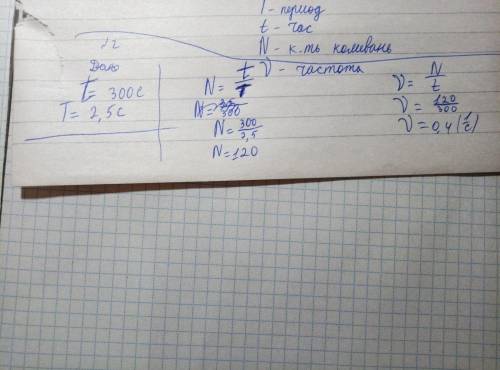 T - период
t - час
N - к-ть коливань
ν - частота
√2
Дано
t = 300с
T = 2,5с
N = t/T
N = 300/2,5
N = 120
ν = N/t
ν = 120/300
ν = 0,4 (1/с)